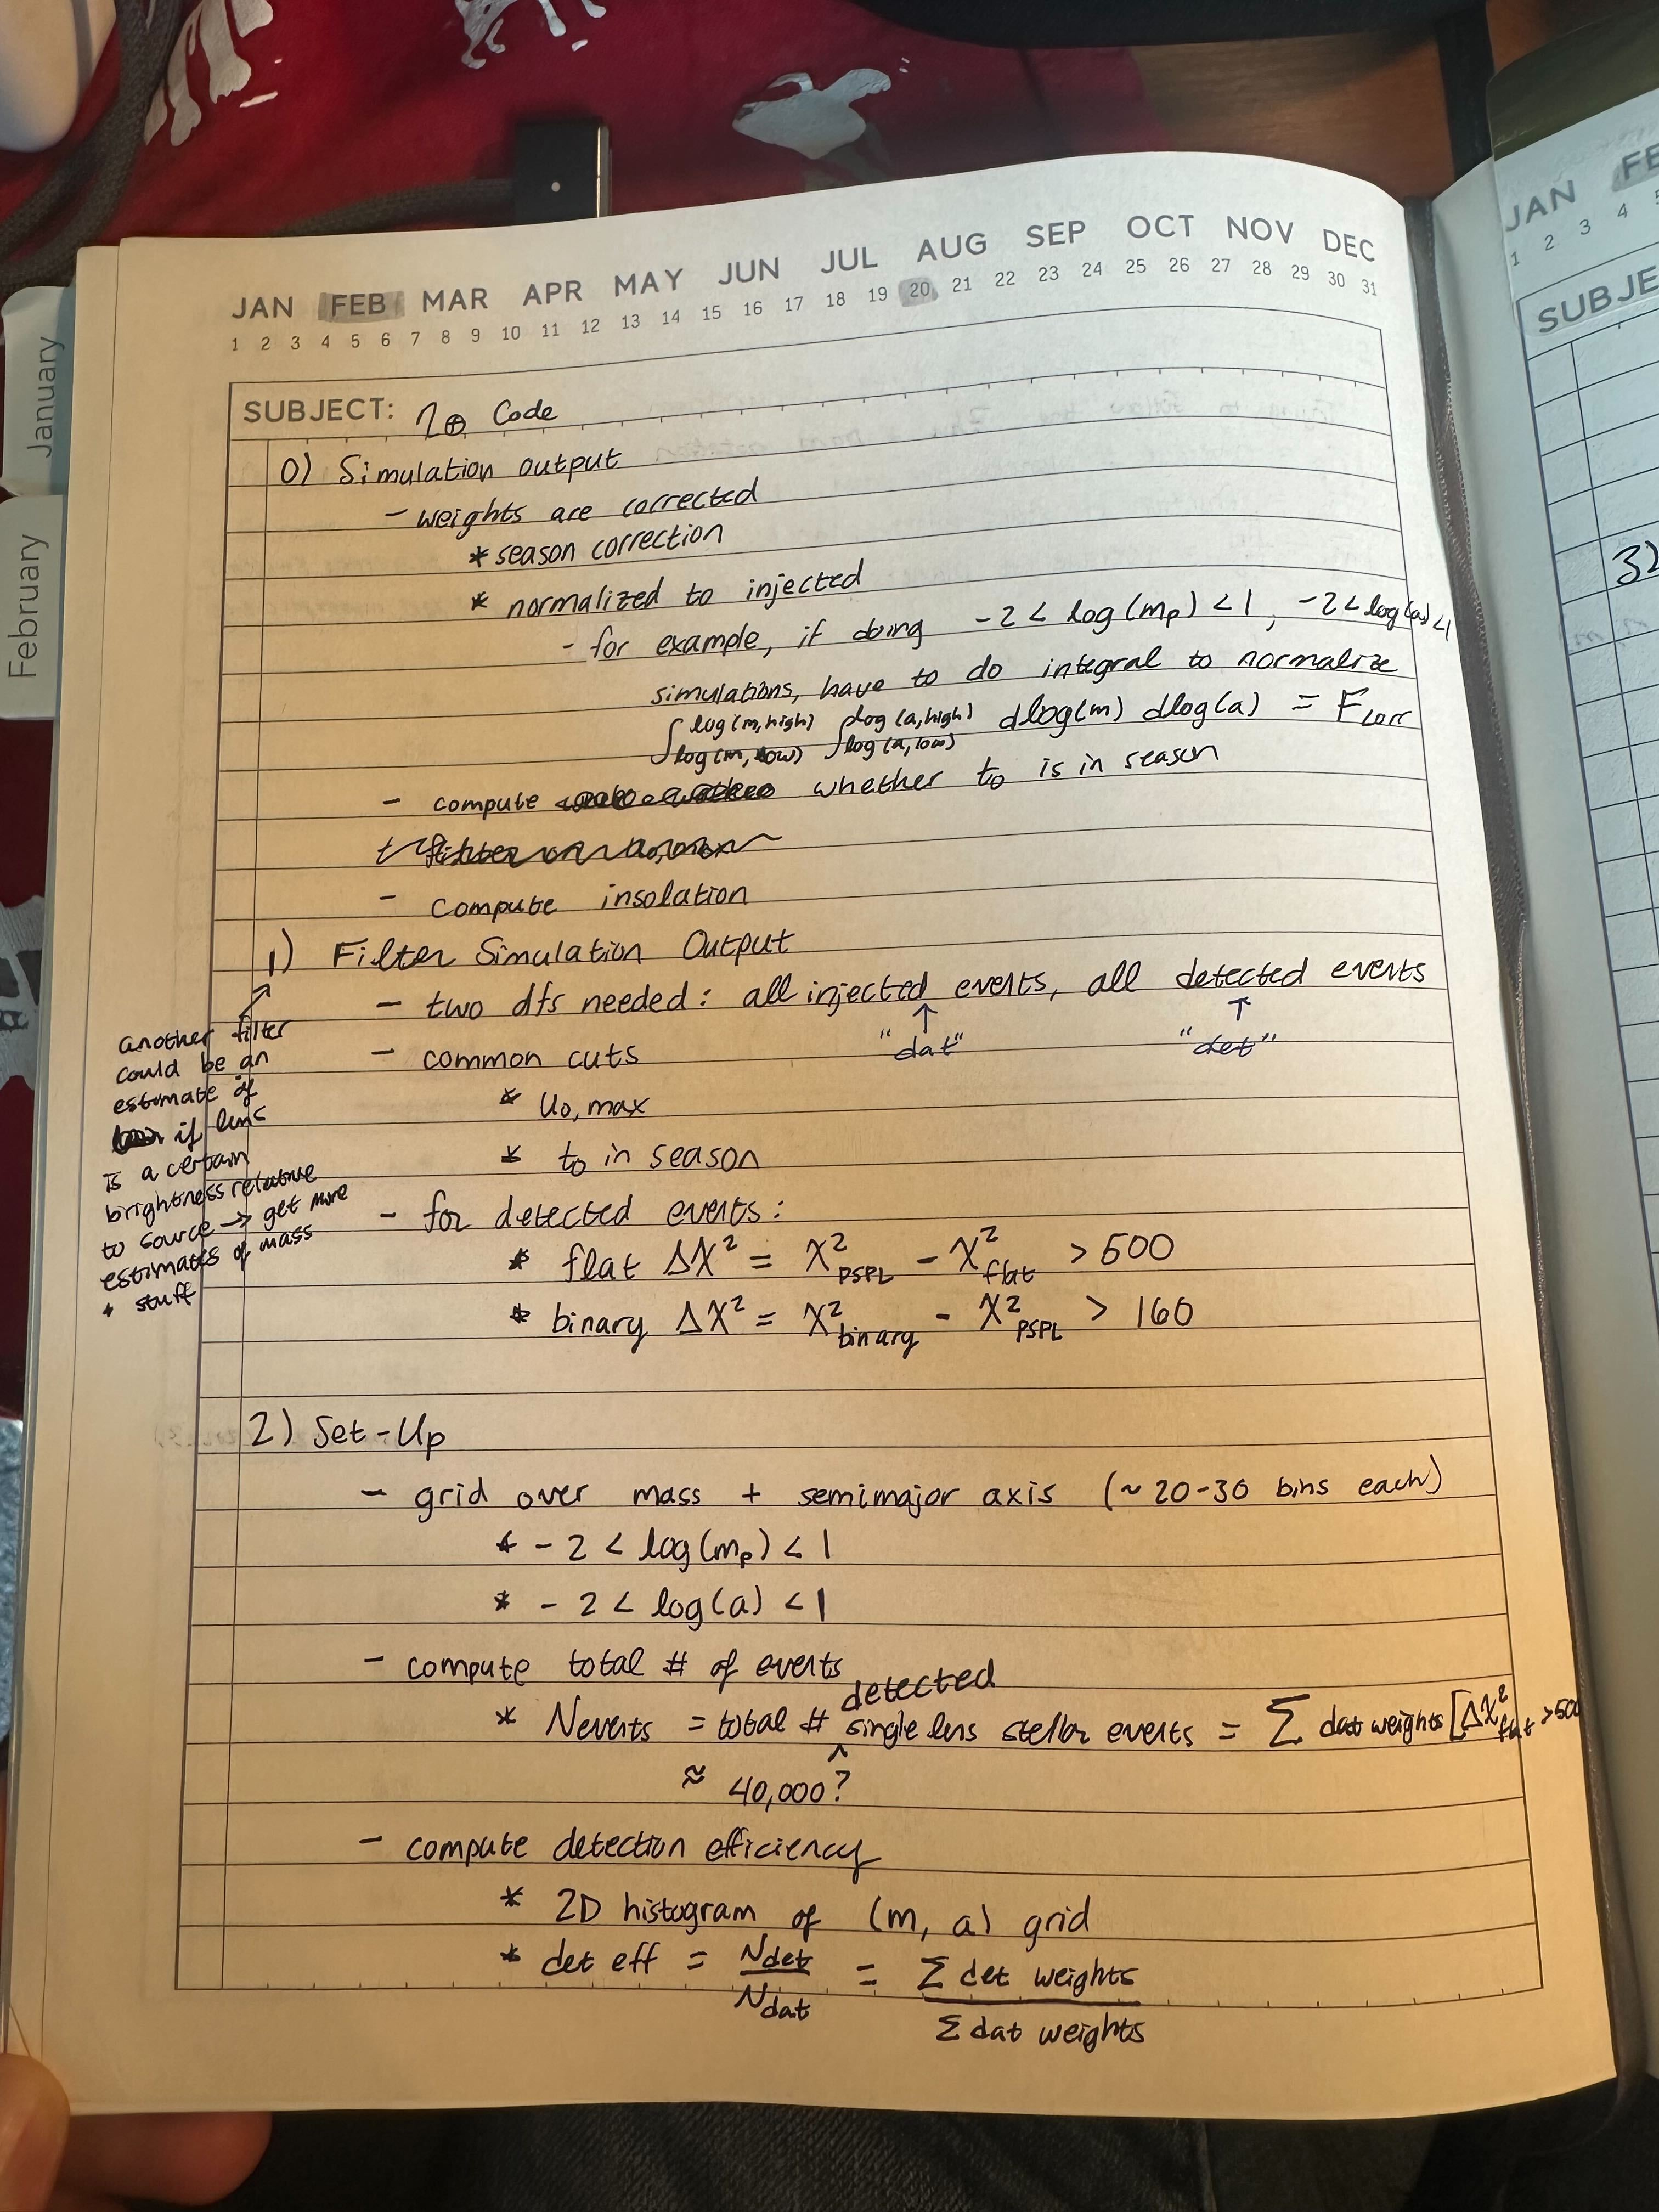 JAN FEB MAR APR MAY JUN JUL AUG SEP OCT NOV DEC
1 2 3 4 5 6 7 8 9 10 11 12 13 14 15 16 17 18 19 20 21 22 23 24 25 26 27 28 29 30 31
SUBJECT: η⊕ Code
0) Simulation output
- weights are corrected
* season correction
* normalized to injected
- for example, if doing -2 < log(mp) < 1, -2 < log(a) < 1
simulations, have to do integral to normalize
∫ log(m,high) log(m,low) ∫ log(a,high) log(a,low) dlog(m) dlog(a) = Fcorr
- compute whether to is in season
- compute insolation
1) Filter Simulation Output
- two dfs needed: all injected events, all detected events
↑ ↑
"dat" "det"
- common cuts
* u0,max
* to in season
- for detected events:
* flat Δχ² = χ²PSPL - χ²flat > 500
* binary Δχ² = χ²binary - χ²PSPL > 160
another filter
could be an
estimate of
if lens
is a certain
brightness relative
to source → get more
estimates of mass
+ stuff
2) Set-Up
- grid over mass + semimajor axis (~20-30 bins each)
* -2 < log(mp) < 1
* -2 < log(a) < 1
- compute total # of events
detected
* Nevents = total # ^ single lens stellar events = Σ dat weights [Δχ²flat > 500
≈ 40,000?
- compute detection efficiency
* 2D histogram of (m, a) grid
* det eff = Ndet / Ndat = Σ det weights / Σ dat weights
January
February
JAN FE
1 2 3 4 5
SUBJE
3)